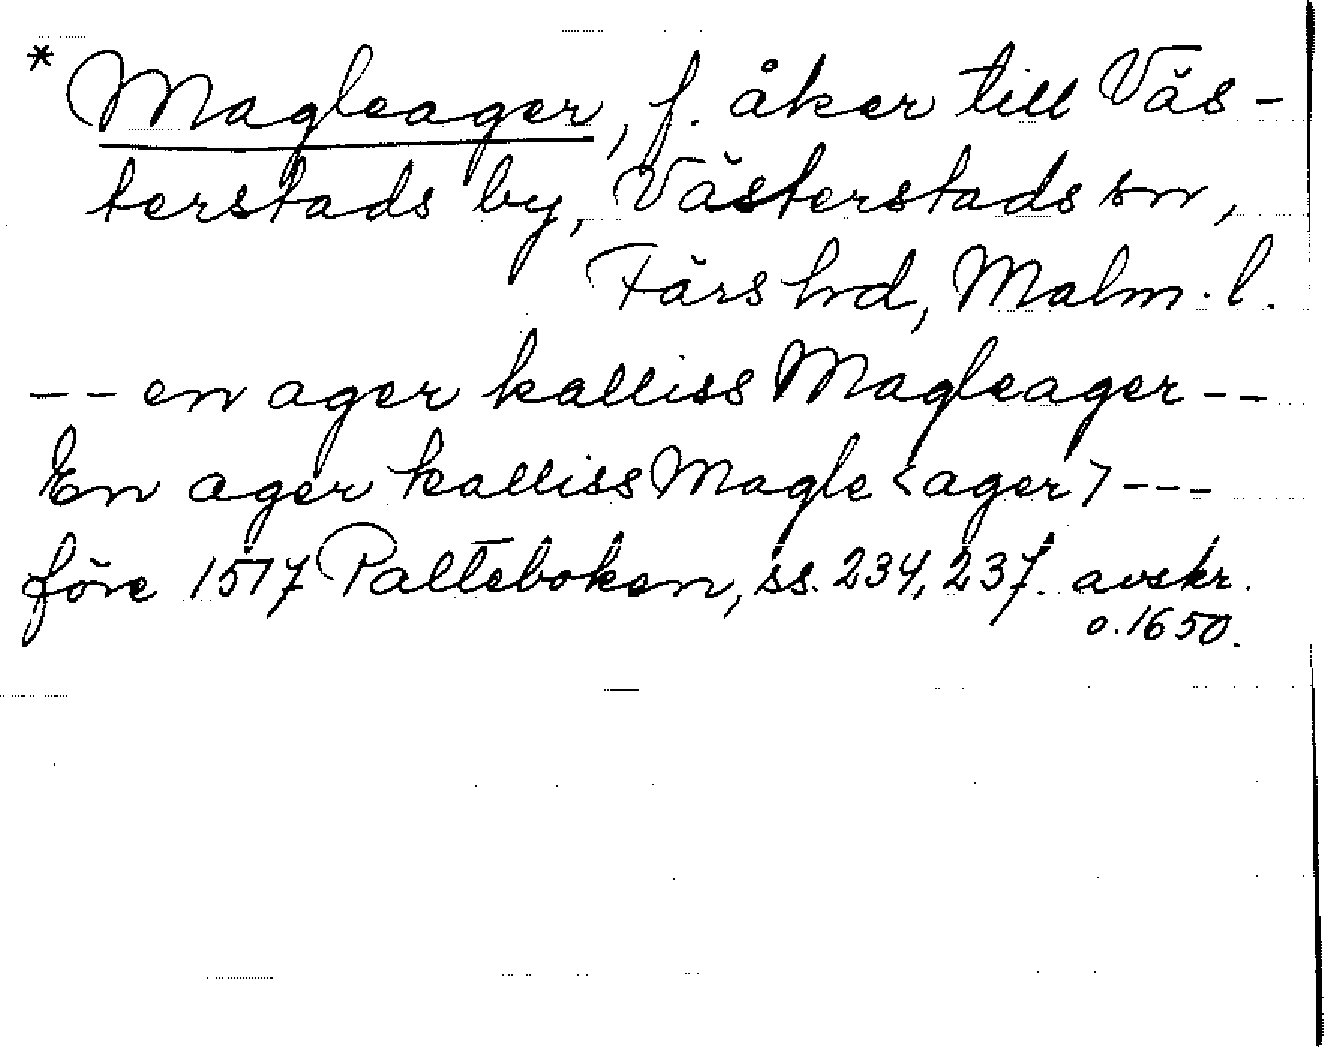 * Magleager, f. åker till Väs-
terstads by, Västerstads sn,
Färs hd, Malm. l.
-- en ager kalliss Magleager --
En ager kalliss Magle <ager> ---
före 1517 Palteboken, ss. 234, 237. avskr.
o. 1650.